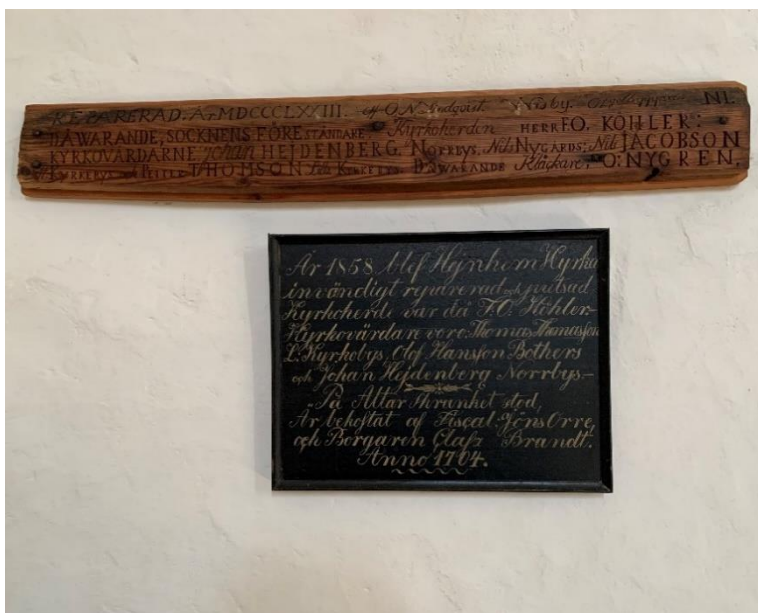 REPARERAD. År MDCCCLXXIII. aff O.N. Wisby.
DÅWARANDE, SOCKNENS FÖRESTÅNDARE Kyrkoherden HERR F.O. KÖHLER:
KYRKOVÄRDARNE Johan HEJDENBERG. NORRBYS. Nils NYGÅRDS: Nils JACOBSON
KYRKEBYS PETTER THOMSON Lila KYRKEBYS. DÅWARANDE Klåckare: O: NYGREN.
År 1858 blef Hejnhem Kyrka
invändigt reparerad och putsad
Kyrkoherde var då F.O. Köhler-
Kyrkovärdare voro: Thomas Thomasson
L: Kyrkobys, Olof Hansson Bothers
och Johan Hejdenberg Norrbys.-
På Altar Skranket stod,
Är bekostat af Fiscal: Jöns Orre,
och Borgaren Claſz Brandt.
Anno 1704.